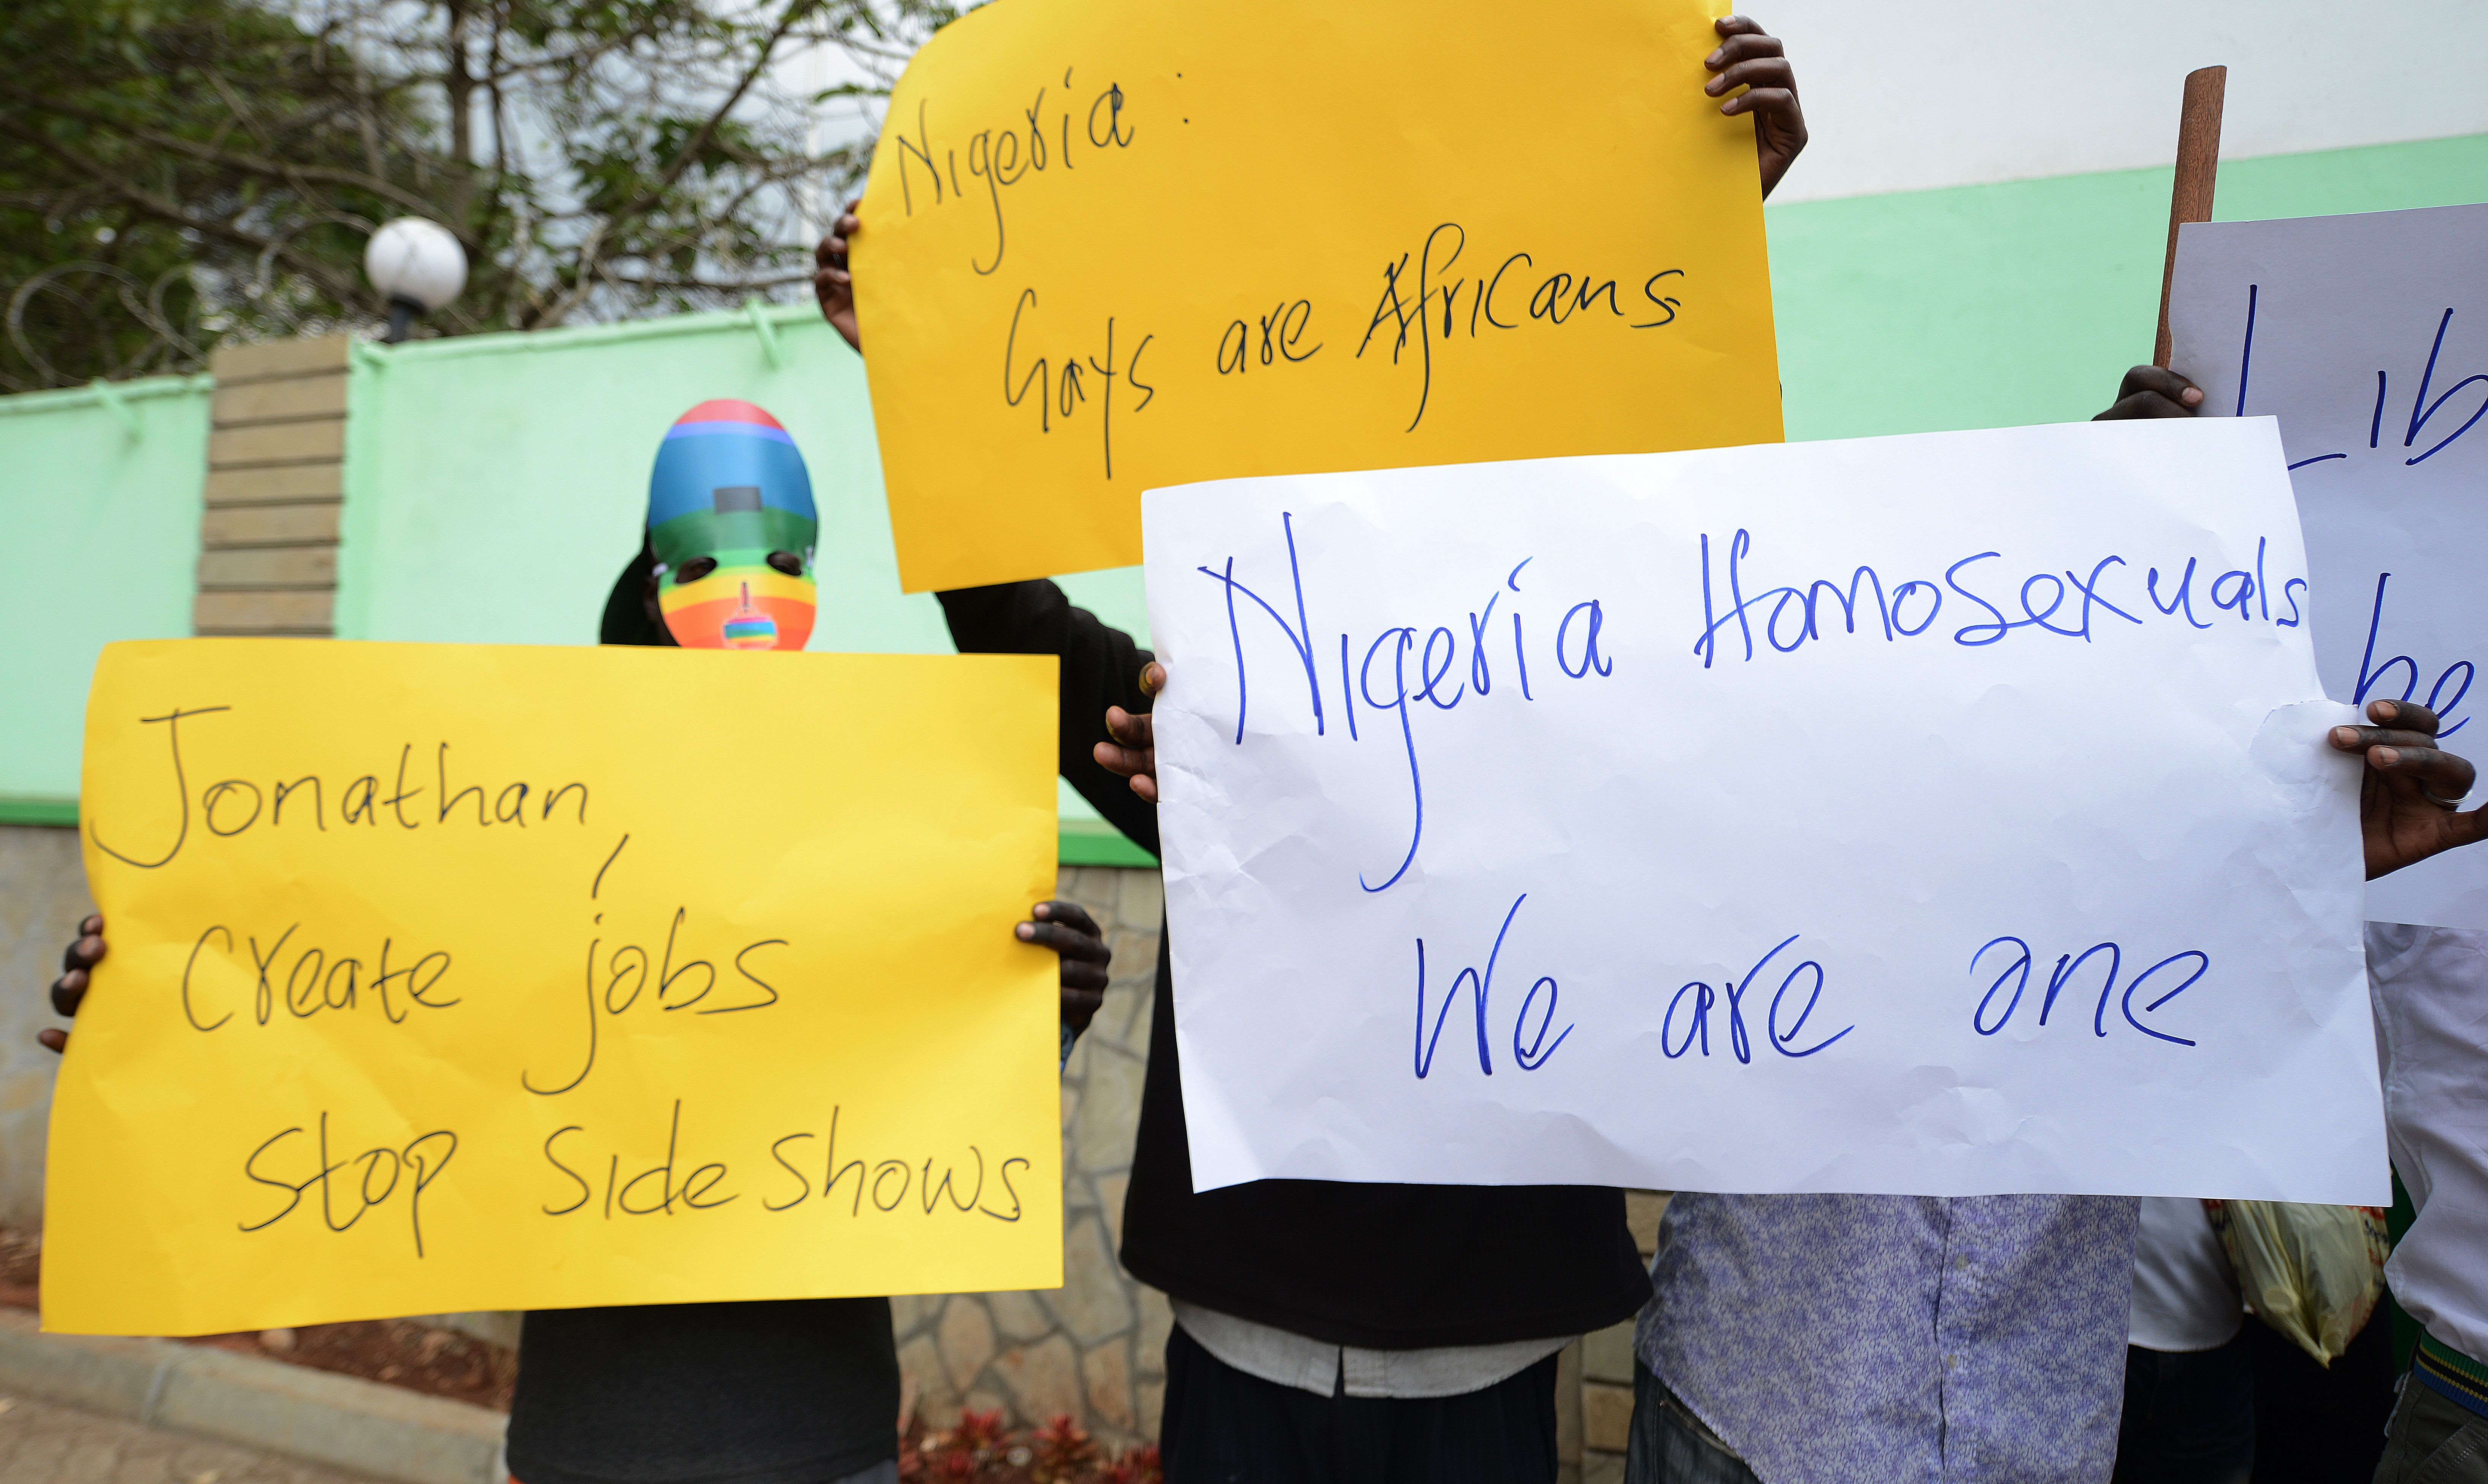 Nigeria:
Gays are Africans
Jonathan,
Create jobs
Stop Side Shows
Nigeria Homosexuals
We are one
Lib
be